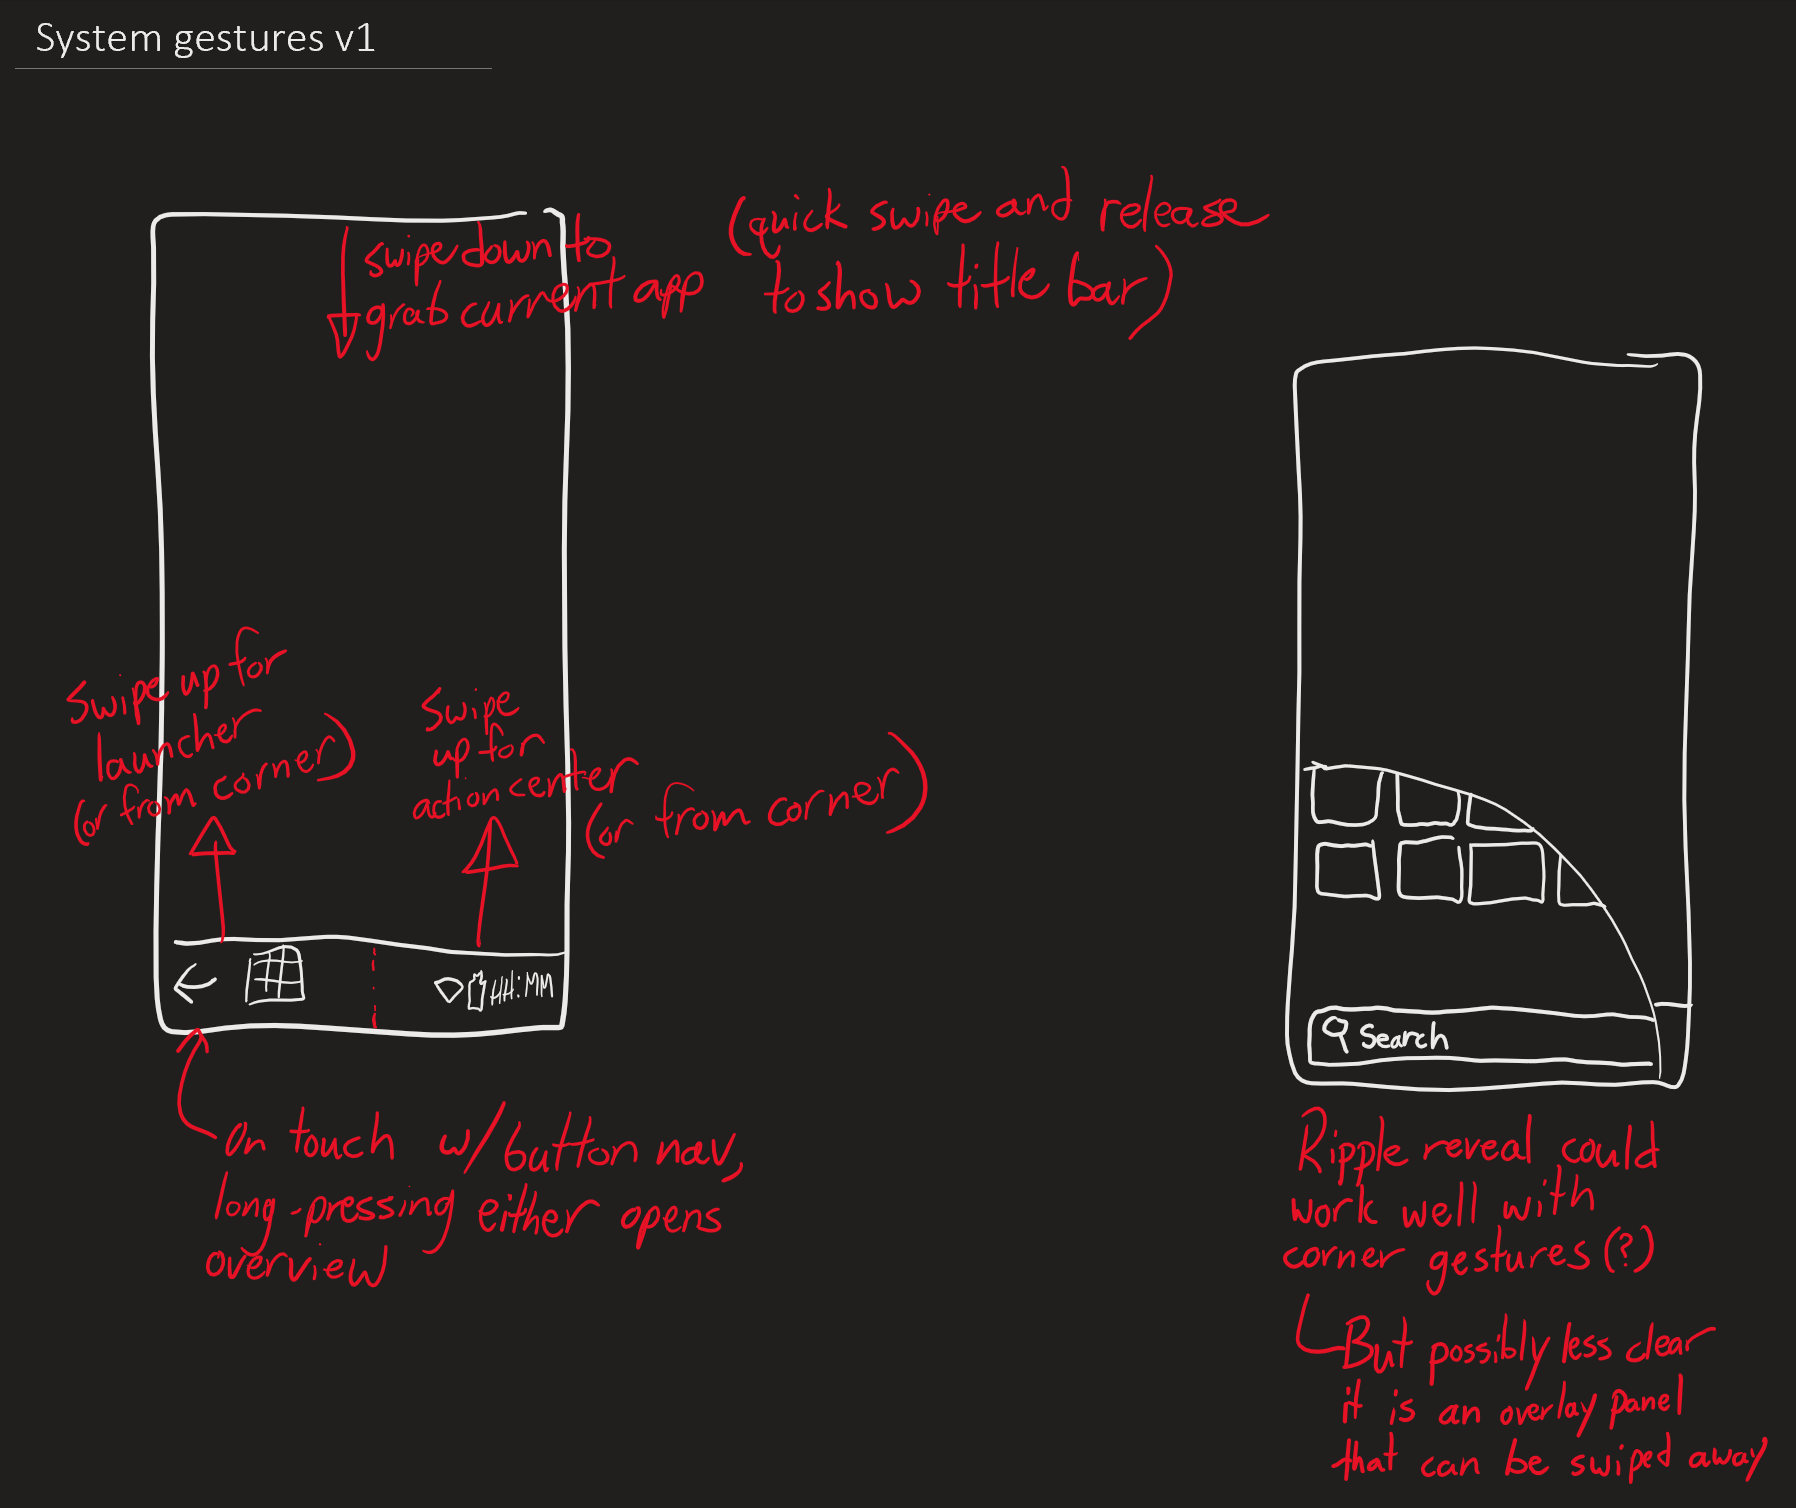 System gestures v1
swipe down to
grab current app
(quick swipe and release
to show title bar)
Swipe up for
launcher
(or from corner)
Swipe
up for
action center
(or from corner)
HH:MM
On touch w/ button nav,
long-pressing either opens
overview
Search
Ripple reveal could
work well with
corner gestures (?)
But possibly less clear
it is an overlay panel
that can be swiped away